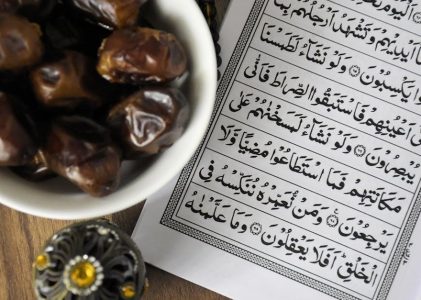 اَلْيَوْمَ
اَيْدِيْهِمْ وَتَشْهَدُ اَرْجُلُهُمْ بِمَا
يَكْسِبُوْنَ ﴿٦٥﴾ وَلَوْ نَشَآءُ لَطَمَسْنَا
اَعْيُنِهِمْ فَاسْتَبَقُوا الصِّرَاطَ فَاَنّٰى
يُبْصِرُوْنَ ﴿٦٦﴾ وَلَوْ نَشَآءُ لَمَسَخْنٰهُمْ عَلٰى
مَكَانَتِهِمْ فَمَا اسْتَطَاعُوْا مُضِيًّا وَّلَا
يَرْجِعُوْنَ ﴿٦٧﴾ وَمَنْ نُّعَمِّرْهُ نُنَكِّسْهُ فِى
الْخَلْقِ اَفَلَا يَعْقِلُوْنَ ﴿٦٨﴾ وَمَا عَلَّمْنٰهُ